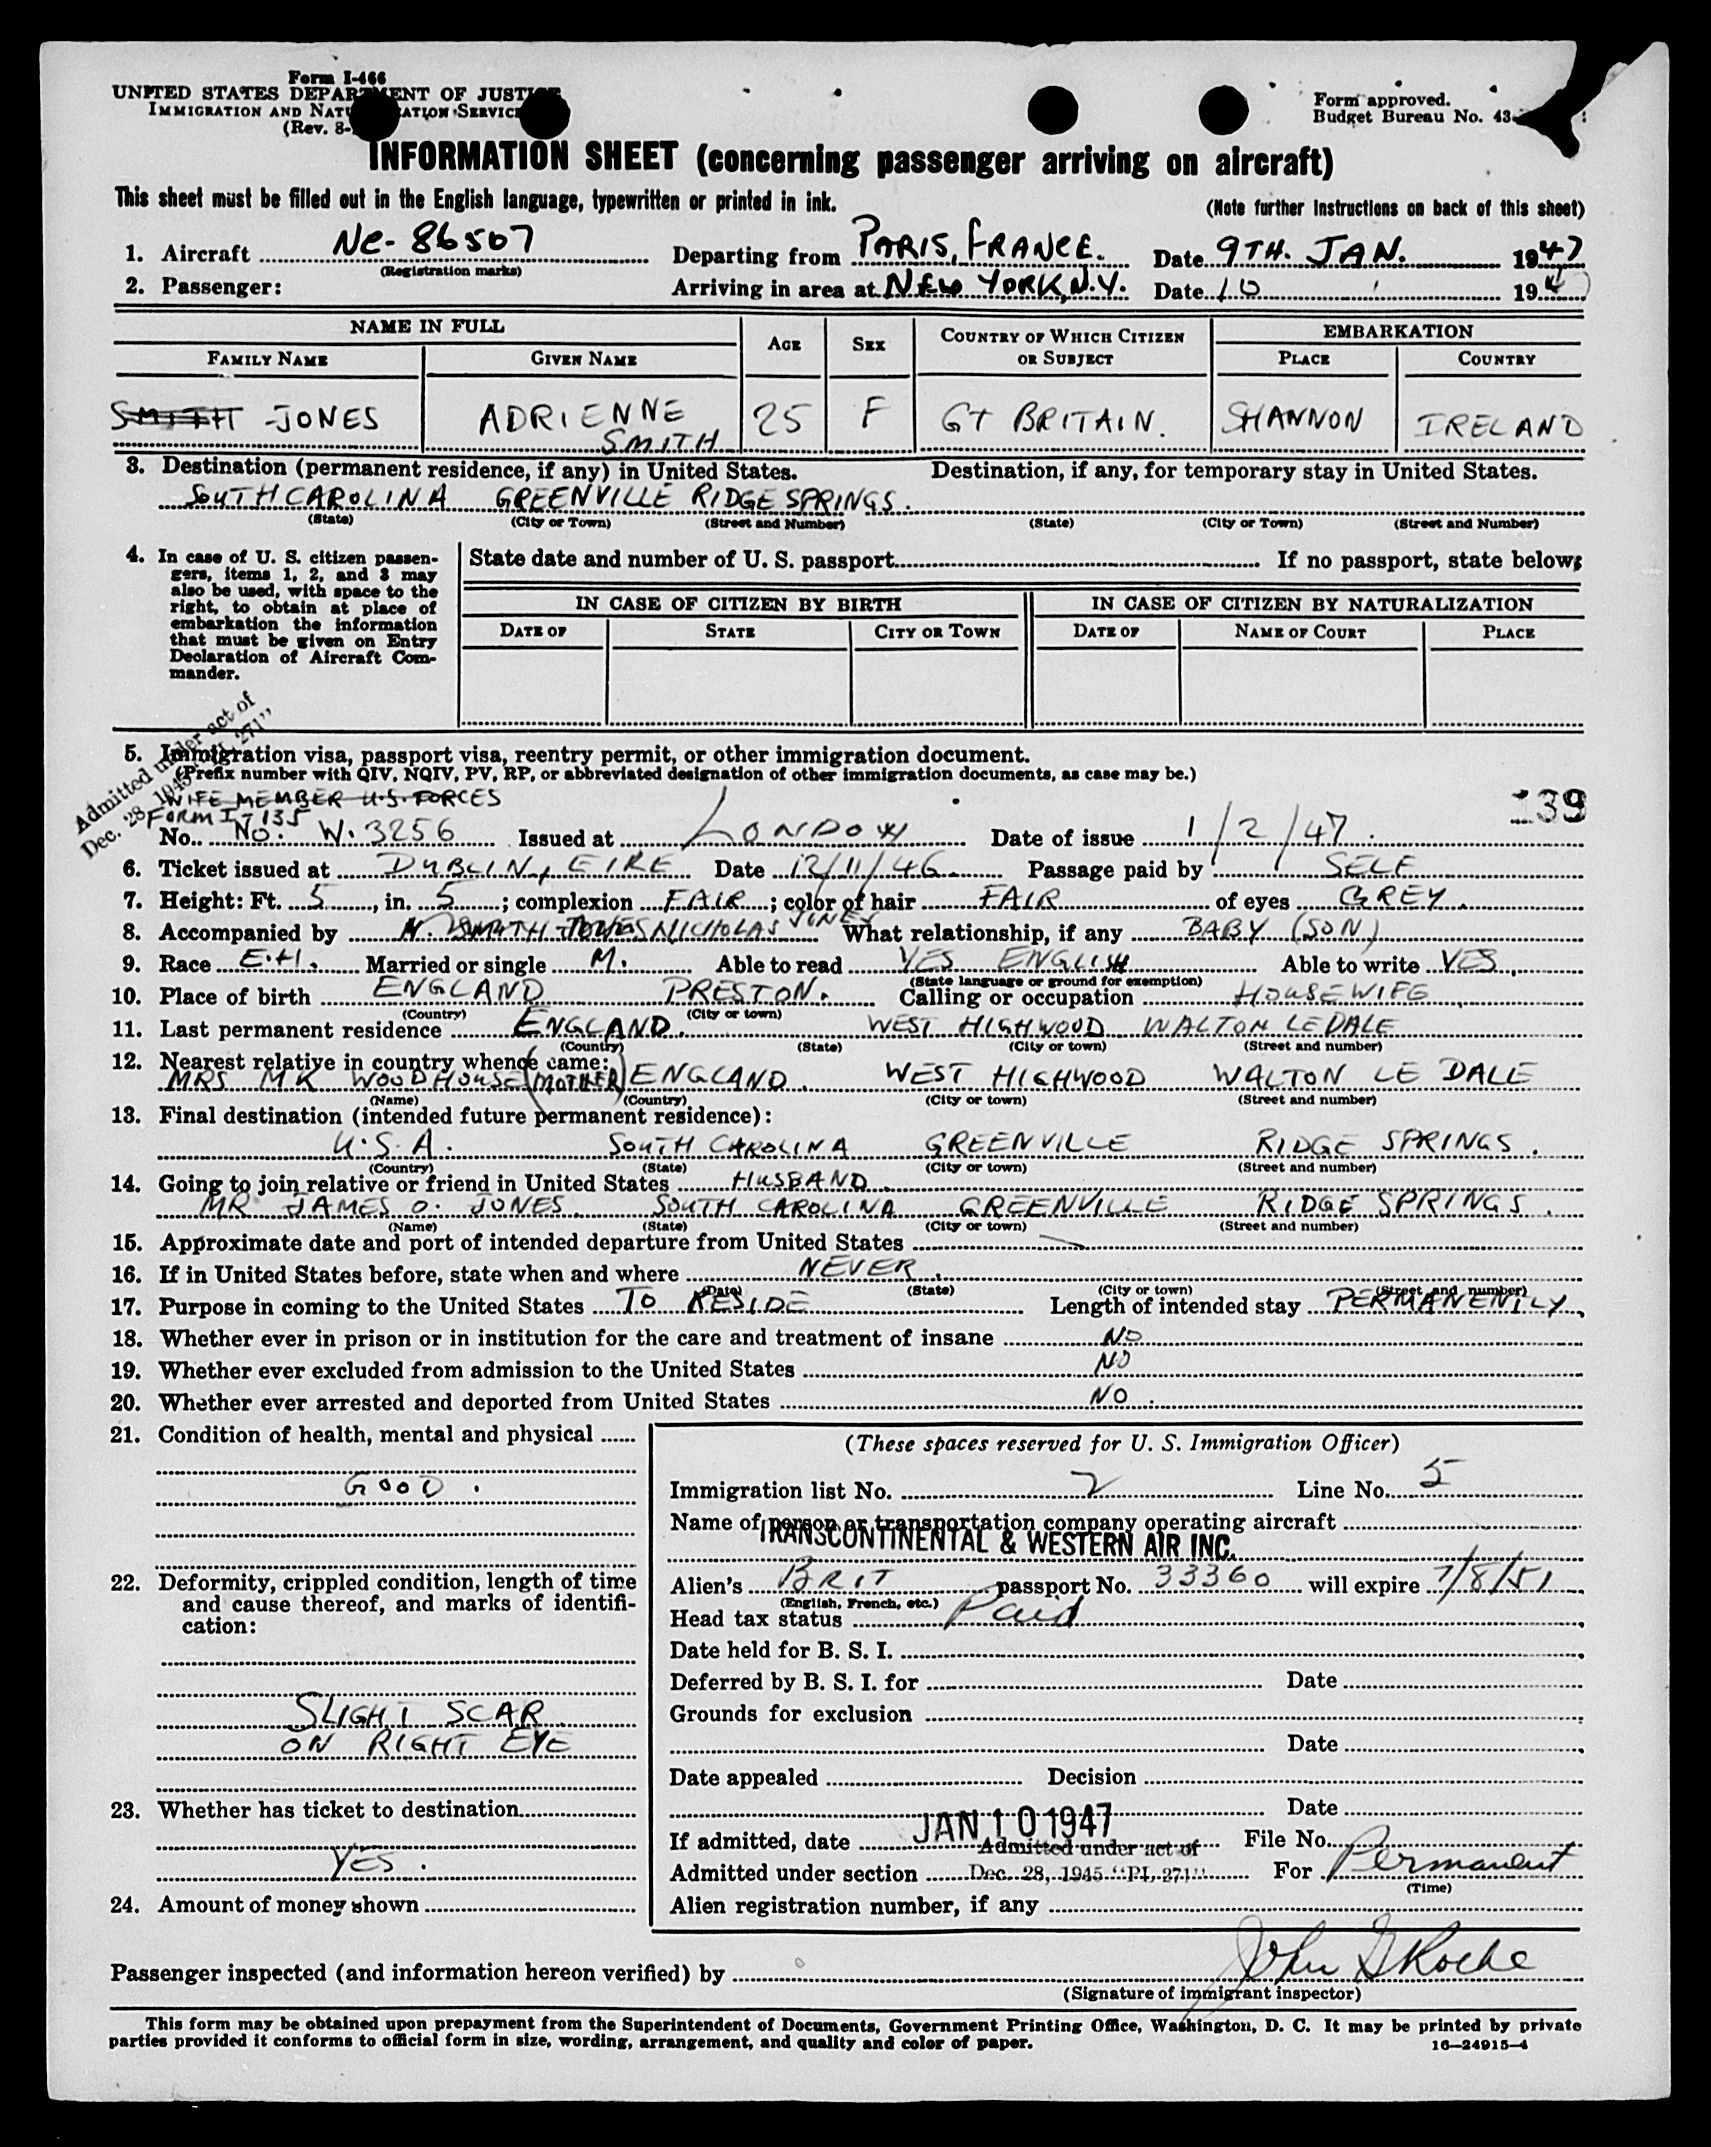 Form I-466
UNITED STATES DEPARTMENT OF JUSTICE
IMMIGRATION AND SERVICE
(Rev. 8-
Form approved.
Budget Bureau No. 43-
INFORMATION SHEET (concerning passenger arriving on aircraft)
This sheet must be filled out in the English language, typewritten or printed in ink.
(Note further instructions on back of this sheet)
1. Aircraft NC-86507 Departing from PARIS, FRANCE. Date 9TH. JAN. 1947
(Registration marks)
2. Passenger: Arriving in area at NEW YORK, N.Y. Date 10 194
NAME IN FULL AGE SEX COUNTRY OF WHICH CITIZEN OR SUBJECT EMBARKATION
FAMILY NAME GIVEN NAME PLACE COUNTRY
SMITH -JONES ADRIENNE SMITH 25 F GT BRITAIN. SHANNON IRELAND
3. Destination (permanent residence, if any) in United States. Destination, if any, for temporary stay in United States.
SOUTH CAROLINA GREENVILLE RIDGE SPRINGS.
(State) (City or Town) (Street and Number) (State) (City or Town) (Street and Number)
4. In case of U. S. citizen passen-
gers, items 1, 2, and 3 may
also be used, with space to the
right, to obtain at place of
embarkation the information
that must be given on Entry
Declaration of Aircraft Com-
mander.
State date and number of U. S. passport If no passport, state below:
IN CASE OF CITIZEN BY BIRTH IN CASE OF CITIZEN BY NATURALIZATION
DATE OF STATE CITY OR TOWN DATE OF NAME OF COURT PLACE
Admitted under act of
Dec. 28, 1945 271"
5. Immigration visa, passport visa, reentry permit, or other immigration document.
(Prefix number with QIV, NQIV, PV, RP, or abbreviated designation of other immigration documents, as case may be.)
WIFE MEMBER U.S. FORCES
139
FORM I-135
No. NO. W. 3256 Issued at LONDON Date of issue 1/2/47.
6. Ticket issued at DUBLIN, EIRE Date 12/11/46 Passage paid by SELF
7. Height: Ft. 5, in. 5; complexion FAIR; color of hair FAIR of eyes GREY.
8. Accompanied by NICHOLAS JONES What relationship, if any BABY (SON)
9. Race E.H. Married or single M. Able to read YES ENGLISH Able to write YES
(State language or ground for exemption)
10. Place of birth ENGLAND PRESTON. Calling or occupation HOUSEWIFE
(Country) (City or town)
11. Last permanent residence ENGLAND. WEST HIGHWOOD WALTON LE DALE
(Country) (State) (City or town) (Street and number)
12. Nearest relative in country whence came:
MRS M K WOODHOUSE (MOTHER) ENGLAND. WEST HIGHWOOD WALTON LE DALE
(Name) (Country) (City or town) (Street and number)
13. Final destination (intended future permanent residence):
U.S.A. SOUTH CAROLINA GREENVILLE RIDGE SPRINGS.
(Country) (State) (City or town) (Street and number)
14. Going to join relative or friend in United States HUSBAND.
MR JAMES O. JONES. SOUTH CAROLINA GREENVILLE RIDGE SPRINGS.
(Name) (State) (City or town) (Street and number)
15. Approximate date and port of intended departure from United States
16. If in United States before, state when and where NEVER.
(Date) (State) (City or town) (Street and number)
17. Purpose in coming to the United States TO RESIDE Length of intended stay PERMANENTLY
18. Whether ever in prison or in institution for the care and treatment of insane NO
19. Whether ever excluded from admission to the United States NO
20. Whether ever arrested and deported from United States NO.
21. Condition of health, mental and physical
GOOD.
22. Deformity, crippled condition, length of time
and cause thereof, and marks of identifi-
cation:
SLIGHT SCAR
ON RIGHT EYE
23. Whether has ticket to destination
YES.
24. Amount of money shown
(These spaces reserved for U. S. Immigration Officer)
Immigration list No. 2 Line No. 5
Name of person or transportation company operating aircraft
TRANSCONTINENTAL & WESTERN AIR INC.
Alien's BRIT passport No. 33360 will expire 7/8/51
(English, French, etc.)
Head tax status Paid
Date held for B. S. I.
Deferred by B. S. I. for Date
Grounds for exclusion
Date
Date appealed Decision
Date
If admitted, date JAN 10 1947 File No.
Admitted under act of
Admitted under section Dec. 28, 1945 "PL 271" For Permanent
(Time)
Alien registration number, if any
Passenger inspected (and information hereon verified) by John G Roche
(Signature of immigrant inspector)
This form may be obtained upon prepayment from the Superintendent of Documents, Government Printing Office, Washington, D. C. It may be printed by private
parties provided it conforms to official form in size, wording, arrangement, and quality and color of paper.
16—24915-4